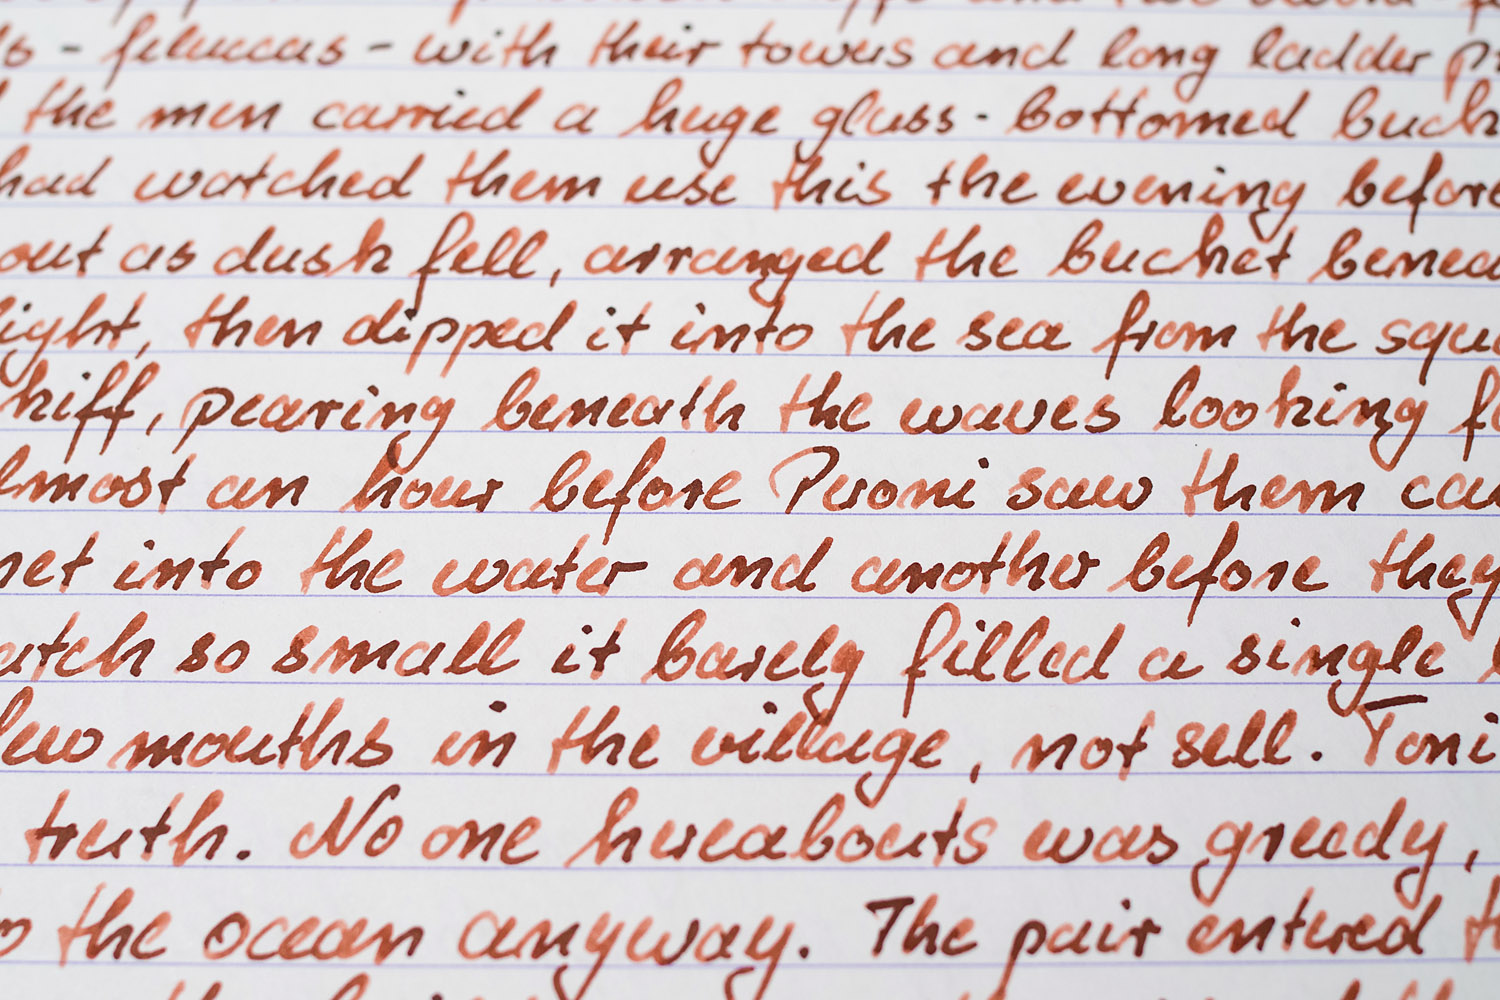 - feluccas - with their towers and long ladder
the men carried a huge glass-bottomed buck
had watched them use this the evening before
out as dusk fell, arranged the bucket benea
light, then dipped it into the sea from the squa
kiff, pearing beneath the waves looking fo
lmost an hour before Peroni saw them ca
net into the water and another before they
atch so small it barely filled a single
few mouths in the village, not sell. Toni
truth. No one hereabouts was greedy,
the ocean anyway. The pair entered